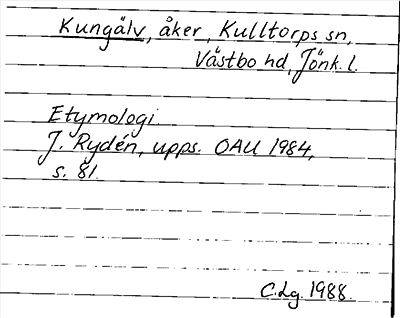 Kungälv, åker, Kulltorps sn,
Västbo hd, Jönk. l.
Etymologi
J. Rydén, upps. OAU 1984,
s. 81.
C.Lg. 1988.